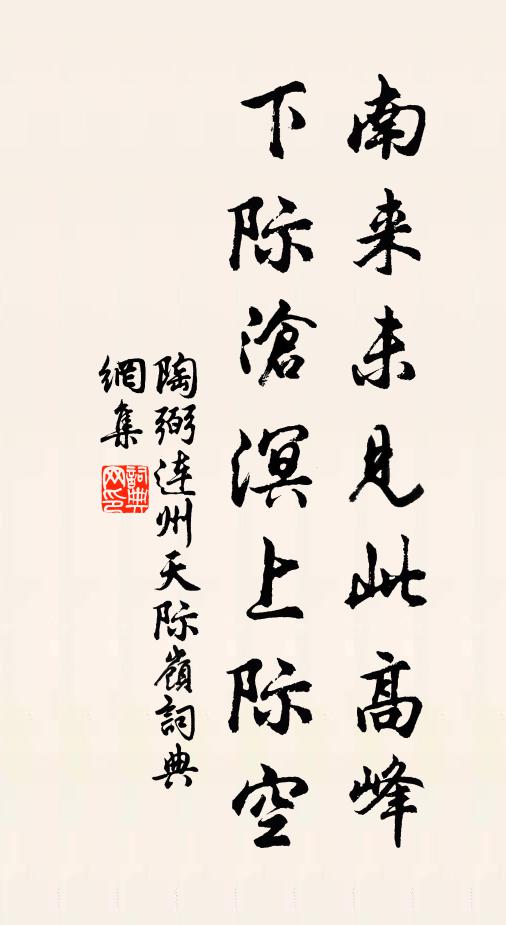 南来未見此高峰
下际滄溟上际空
陶弼连州天际嶺詞典
網集
詞典
网印